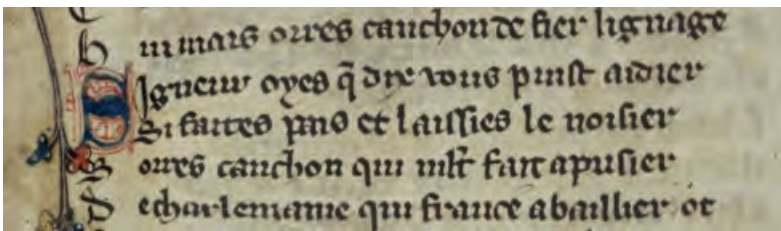 H ui mais orres canchon de fier lignage
Signeur oyes q̃ dre vous puist aidier
Si faites pais et laissies le noisier
S orres canchon qui mlt̃ fait a prisier
D e charlemaine qui france a baillier ot